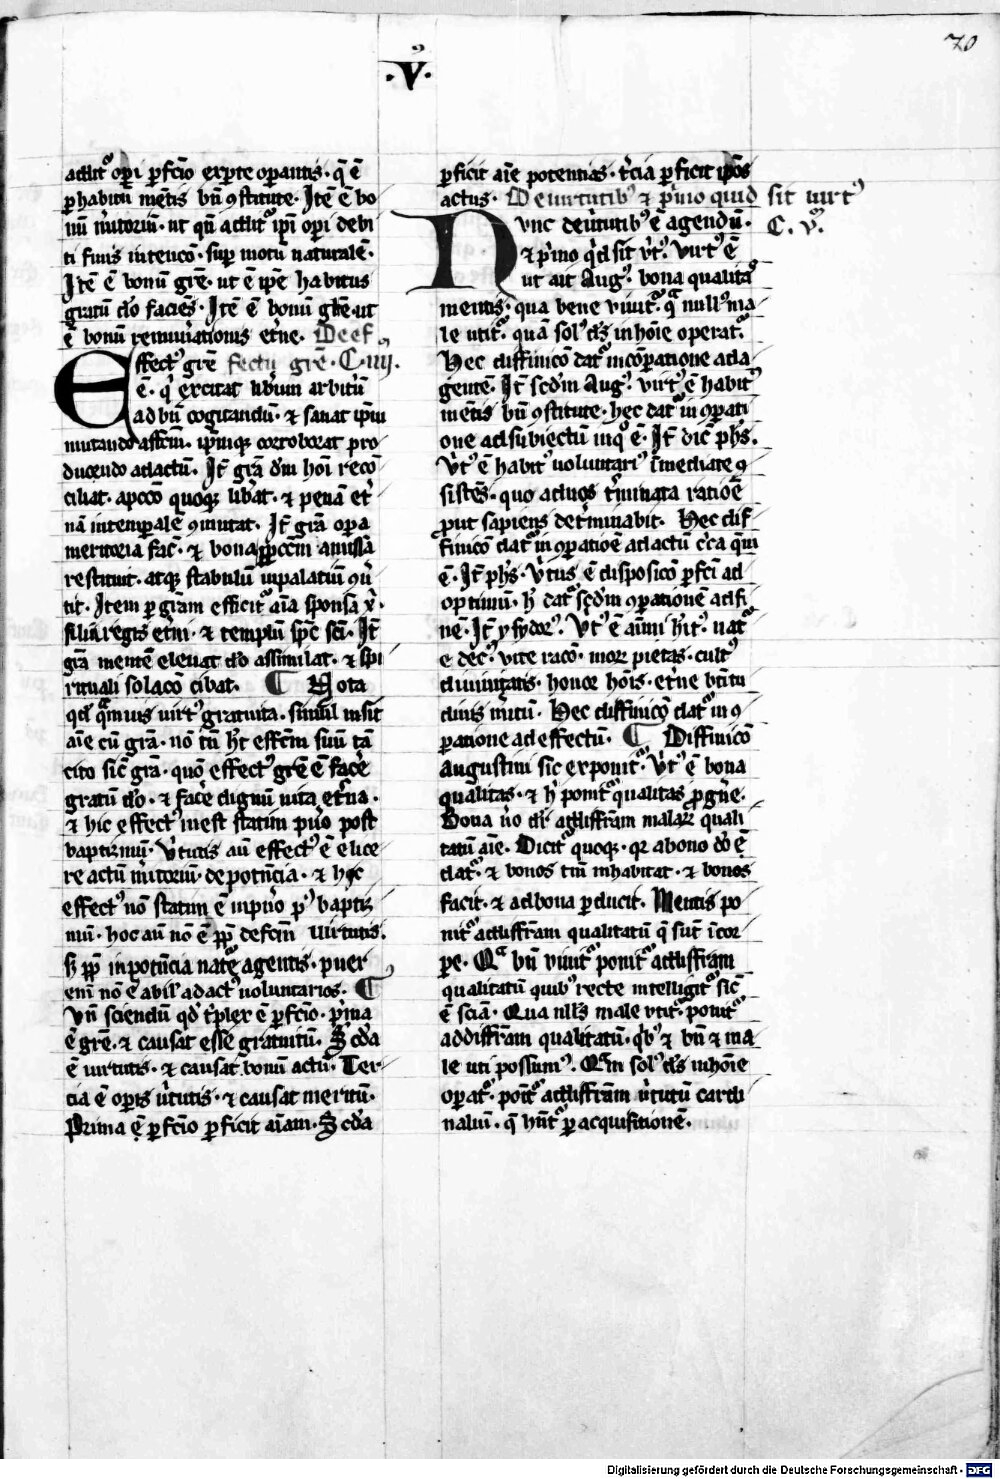 70
.v⁹.
addit᷒ oꝑi ꝑfc̄io exꝑte oꝑantis. q̄ ē
ꝑ habitū mētis bn̄ ꝯstitute. Itē ē bo
nū m̄itoriū. ut qn̄ addit᷒ ip̄i oꝑi debi
ti finis intencō. suꝑ motū naturalē.
Itē ē bonū grē. ut ē ip̄e habitus
gratū do͛ faciēs. Itē ē bonū gl̄ie. ut
ē bonū remun̄ationis et̄ne. De ef
fectu grē. C. iiij.
Effect⁹ grē
ē. q͛ excitat lib̄um arbit̄ū
ad bn̄ cogitandū. ⁊ sanat ip̄m
mutando affcm̄. ip̄mqꝫ corroborat pro
ducendo ad actū. It̄ grā dm̄ hoı̄ recō
ciliat. a pcc̄o quoqꝫ lib̄at. ⁊ penā et̄
nā in temꝑale ꝯmutat. It̄ grā oꝑa
meritoria fac̄. ⁊ bona ꝓpt̄ pcc̄m amissa
restituit. atqꝫ stabulū in palatiū ꝯū
tit. Item ꝑ grām efficit᷒ aīa sponsa xͥ.
filia regis et̄ni. ⁊ templū sp̄c scī. It̄
grā mentē eleuat do͛ assimilat. ⁊ spi
rituali solacō cibat. ¶ Nota
qd̄ qᷓmuis uirt⁹ gratuita. simul insit
aīe cū grā. nō tn̄ hȝt effcm̄ suū tā
cito sic̄ grā. quō effect⁹ grē ē facͤe
gratū do͛. ⁊ facͤe dignū uita et̄na.
⁊ hic effect⁹ inest statim puo͛ post
baptismū. v̄tutis au̅ effect⁹ ē elice
re actū m̄itoriū. de potn̄cia. ⁊ hic
effect⁹ nō statim ē in puo͛ pꝰ baptiz
mū. hoc au̅ nō ē ꝓpt̄ defcm̄ uirtutis.
sꝫ ꝓpt̄ inpotn̄cia nat᷒e agentis. puer
enī nō ē abil᷒ ad act⁹ voluntarios. ¶
Vn̄ sciendū qd̄ t͛plex ē ꝑfc̄io. pͥma
ē grē. ⁊ causat esse gratuitū. Scd̄a
ē uirtutis. ⁊ causat bonum actū. Ter
cia ē oꝑis v̄tutis. ⁊ causat meritū.
Prima ē ꝑfc̄io ꝑficit aīam. Scd̄a
ꝑficit aīe potentias. t͛cia ꝑficit ip̄os
actus. De uirtutib⁹ ⁊ pͥmo quid sit uirt⁹
C. v⁹.
Nvnc de v̄tutib⁹ ē agendū.
⁊ pͥmo qͥd sit v̄t⁹. Virt⁹ ē
ut ait Aug⁹. bona qualitas
mentis. qua bene viuit᷒. qᷓ null⁹ ma
le utit᷒. quā sol⁹ ds̄ in hoı̄e operat᷒.
Hec diffinicō dat᷒ in cōꝑatione ad a
gentē. It̄ scd̄m Aug⁹. virt⁹ ē habit⁹
mētis bn̄ ꝯstitute. hec dat᷒ in ꝯꝑati
one ad subiectū in q͛ ē. It̄ dic̄ phs̄.
v̄t⁹ ē habit⁹ voluntari⁹ īmediate ꝯ
sistēs. quo ad uos t͛minata ratiōe
ꝓut sapiens det͛minabit. Hec dif
finicō dat᷒ in ꝯꝑatiōe ad actū c͛ca q̄m
ē. It̄ phs̄. v̄tus ē disposicō ꝑfc̄i ad
optimū. h̄ dat᷒ scd̄m ꝯꝑationē ad fi
nē. It̄ ysydor⁹. Vt⁹ ē aīmi hı̄t⁹. nat᷒
e dec⁹. vite racō. morꝫ pietas. cult⁹
diuinitatis. honor hoı̄s. et̄ne btı̄tu
dinis m̄itū. Hec diffinicō dat᷒ in ꝯ
ꝑatione ad effectū. ¶ Diffinicō
augustini sic exponit᷒. v̄t⁹ ē bona
qualitas. ⁊ h̄ ponit᷒ qualitas ꝓ gn̄e.
Bona v͛o dr̄ ad diffr̄am malarꝫ quali
tatū aīe. Dicit᷒ quoqꝫ. qꝛ a bono do͛ ē
dat᷒. ⁊ bonos tm̄ inhabitat. ⁊ bonos
facit. ⁊ ad bona ꝑducit. Mentis po
nit᷒ ad diffr̄am qualitatū q̄ sūt ī cor
ꝑe. Qᷓ bn̄ viuit᷒ ponit᷒ ad diffr̄am
qualitatū quib⁹ recte intelligit᷒ sic̄
ē sciā. Qua nll̄s male vtit᷒. ponit᷒
ad diffr̄am qualitatū. qͥb⁹ ⁊ bn̄ ⁊ ma
le uti possum⁹. Qᷓm sol⁹ ds̄ in hoı̄e
oꝑat᷒. poı̄t᷒ ad diffr̄am v̄tutū cardi
naliū. q̄ hn̄t᷒ ꝑ acquisitionē.
Digitalisierung gefördert durch die Deutsche Forschungsgemeinschaft - DFG